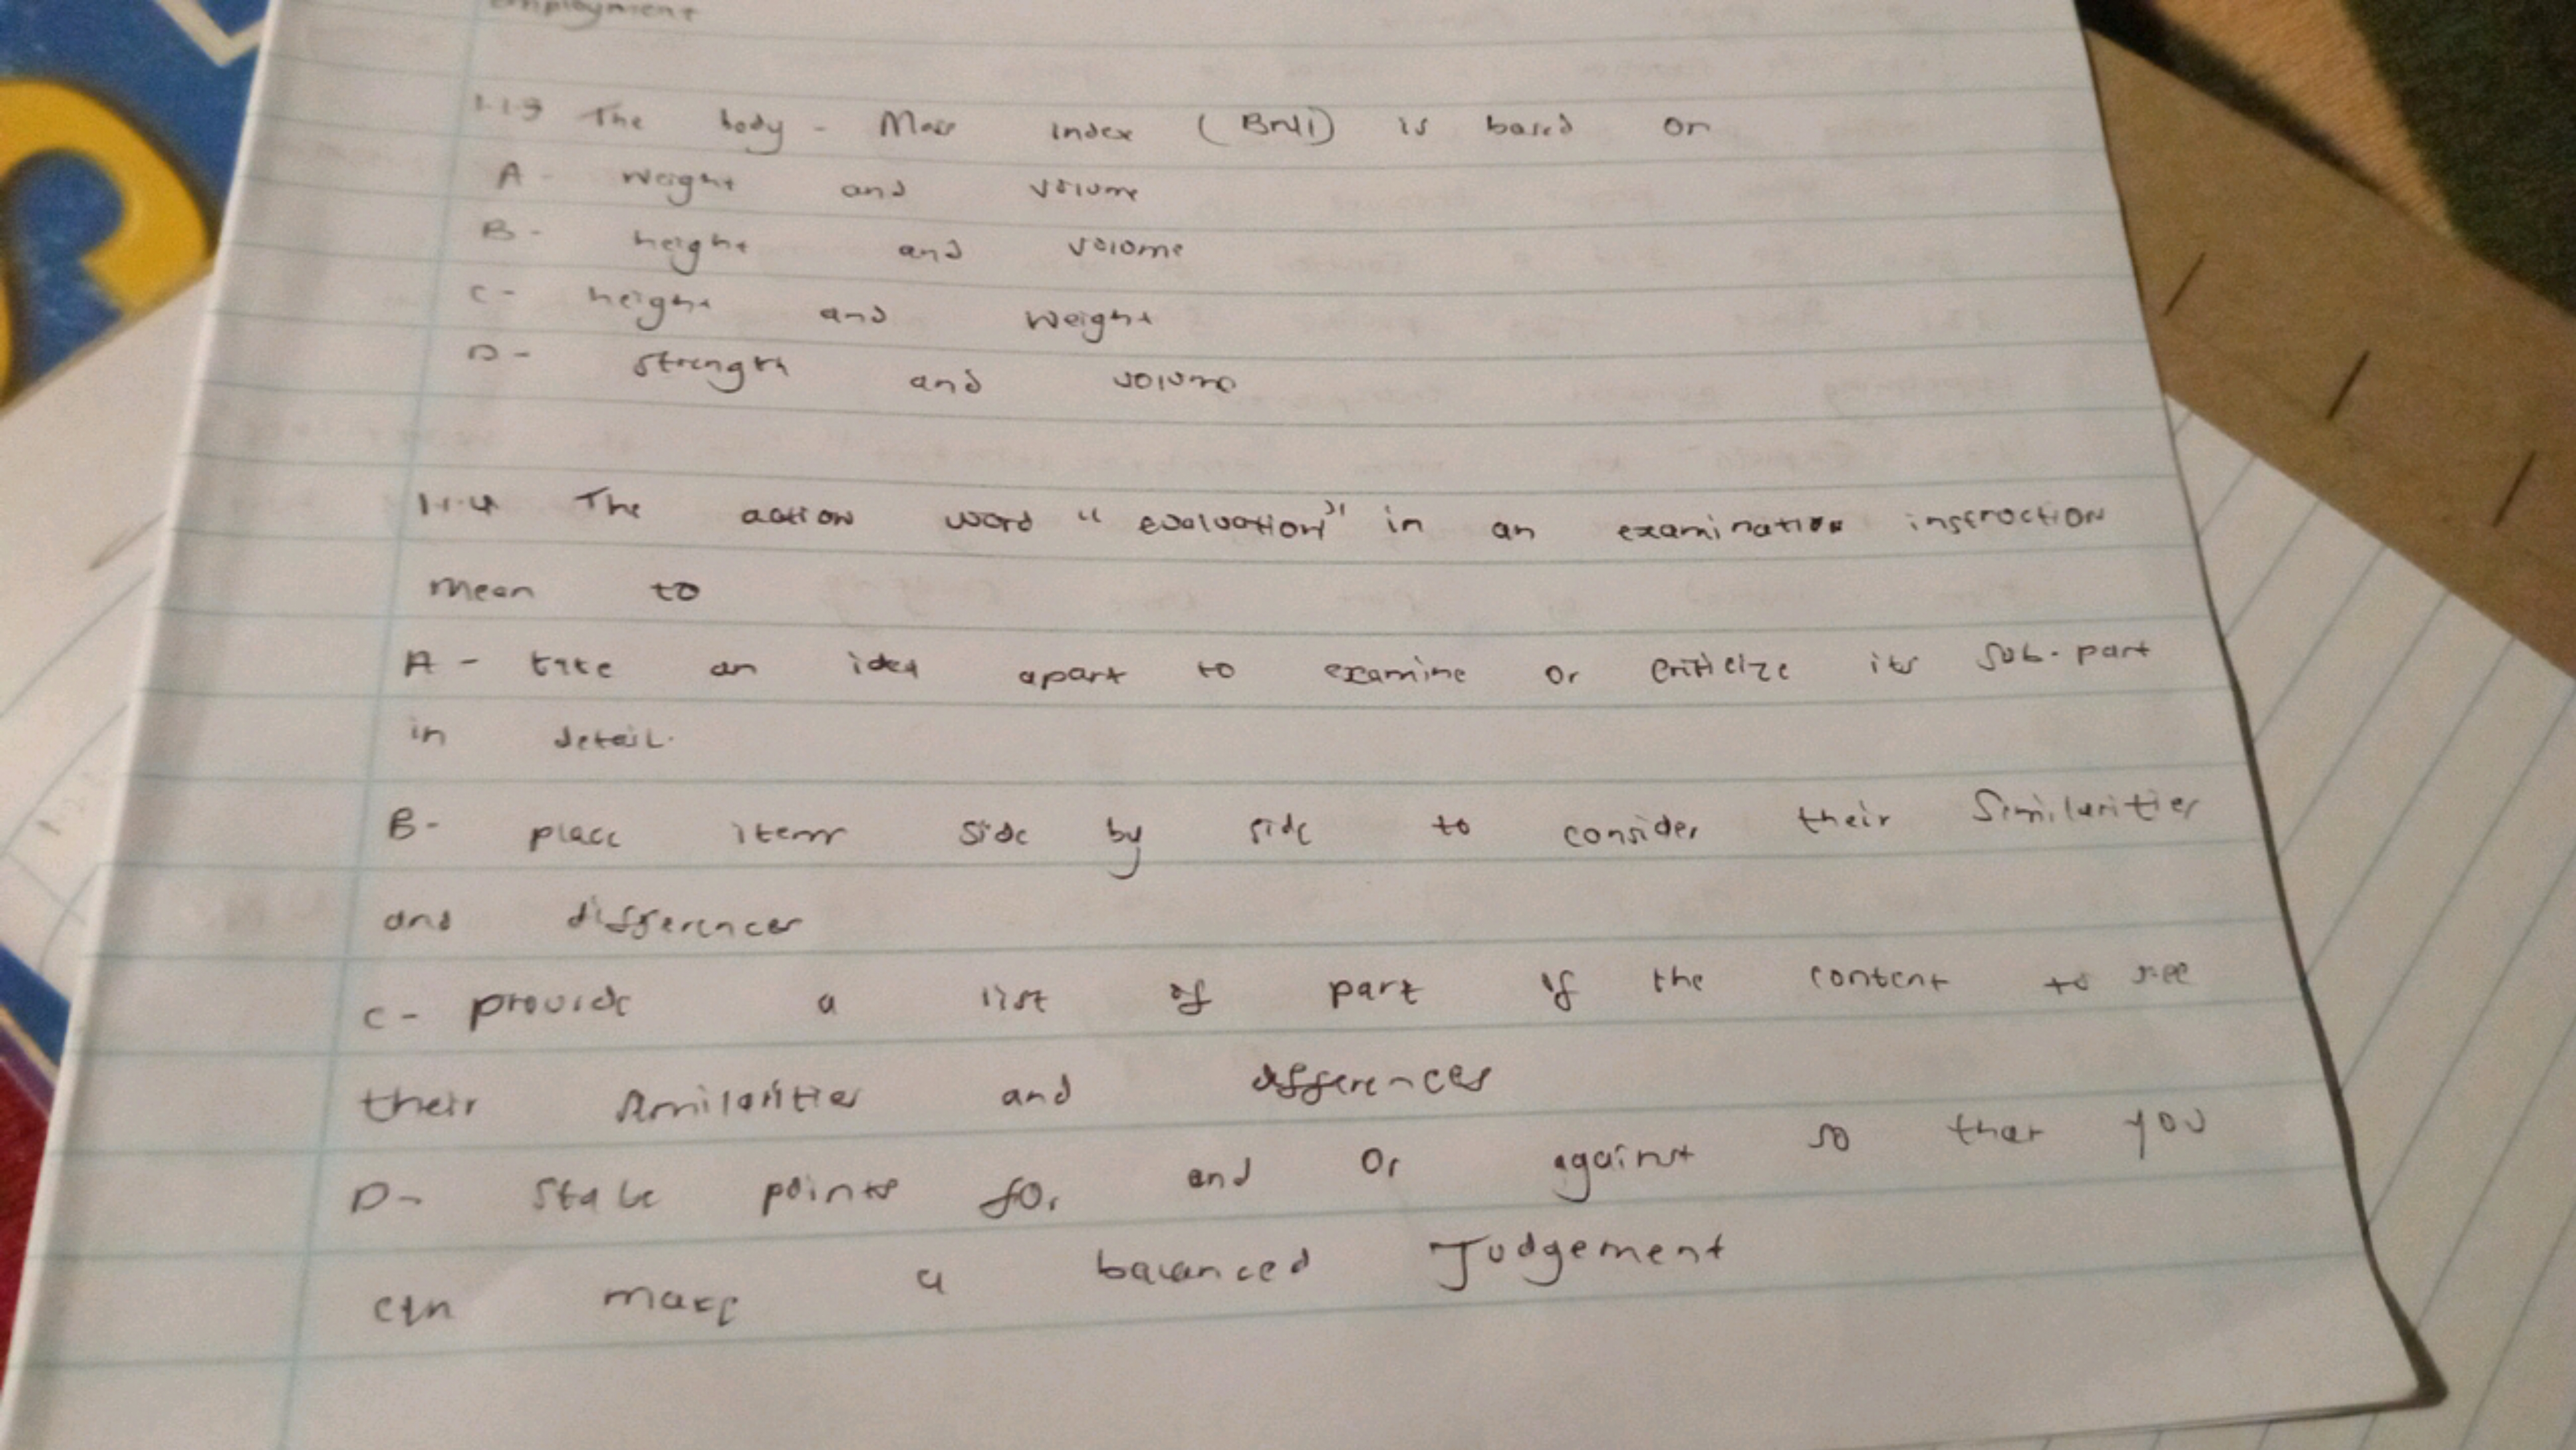 employment
1.1.3 The body - Mass index (BMI) is based on
A - weight and volume
B - height and volome
C - height and weight
D - strength and volume
1.1.4 The action word "evaluation" in an examination instroction
mean to
A - take an idea apart to examine or criticize its sub-part
in detail.
B- place items side by side to consider their Similarities
and differences
C - provide a list of part if the content to see
their similarities and differences
D- State points for and or against so that you
can make a balanced Judgement